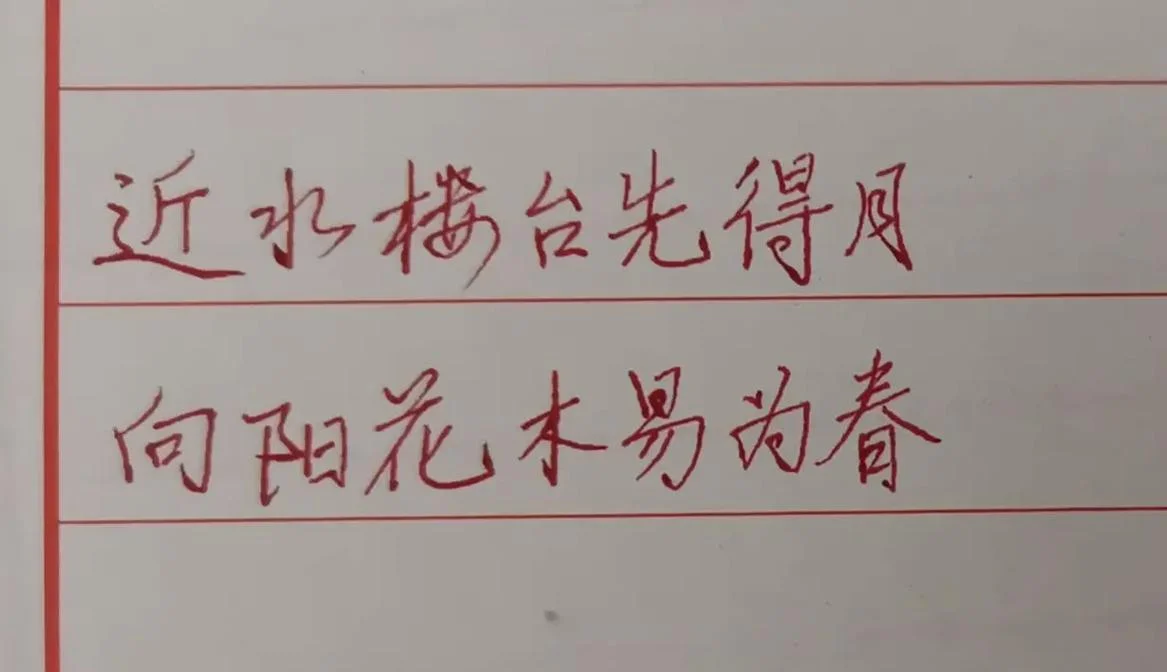 近水楼台先得月
向阳花木易为春